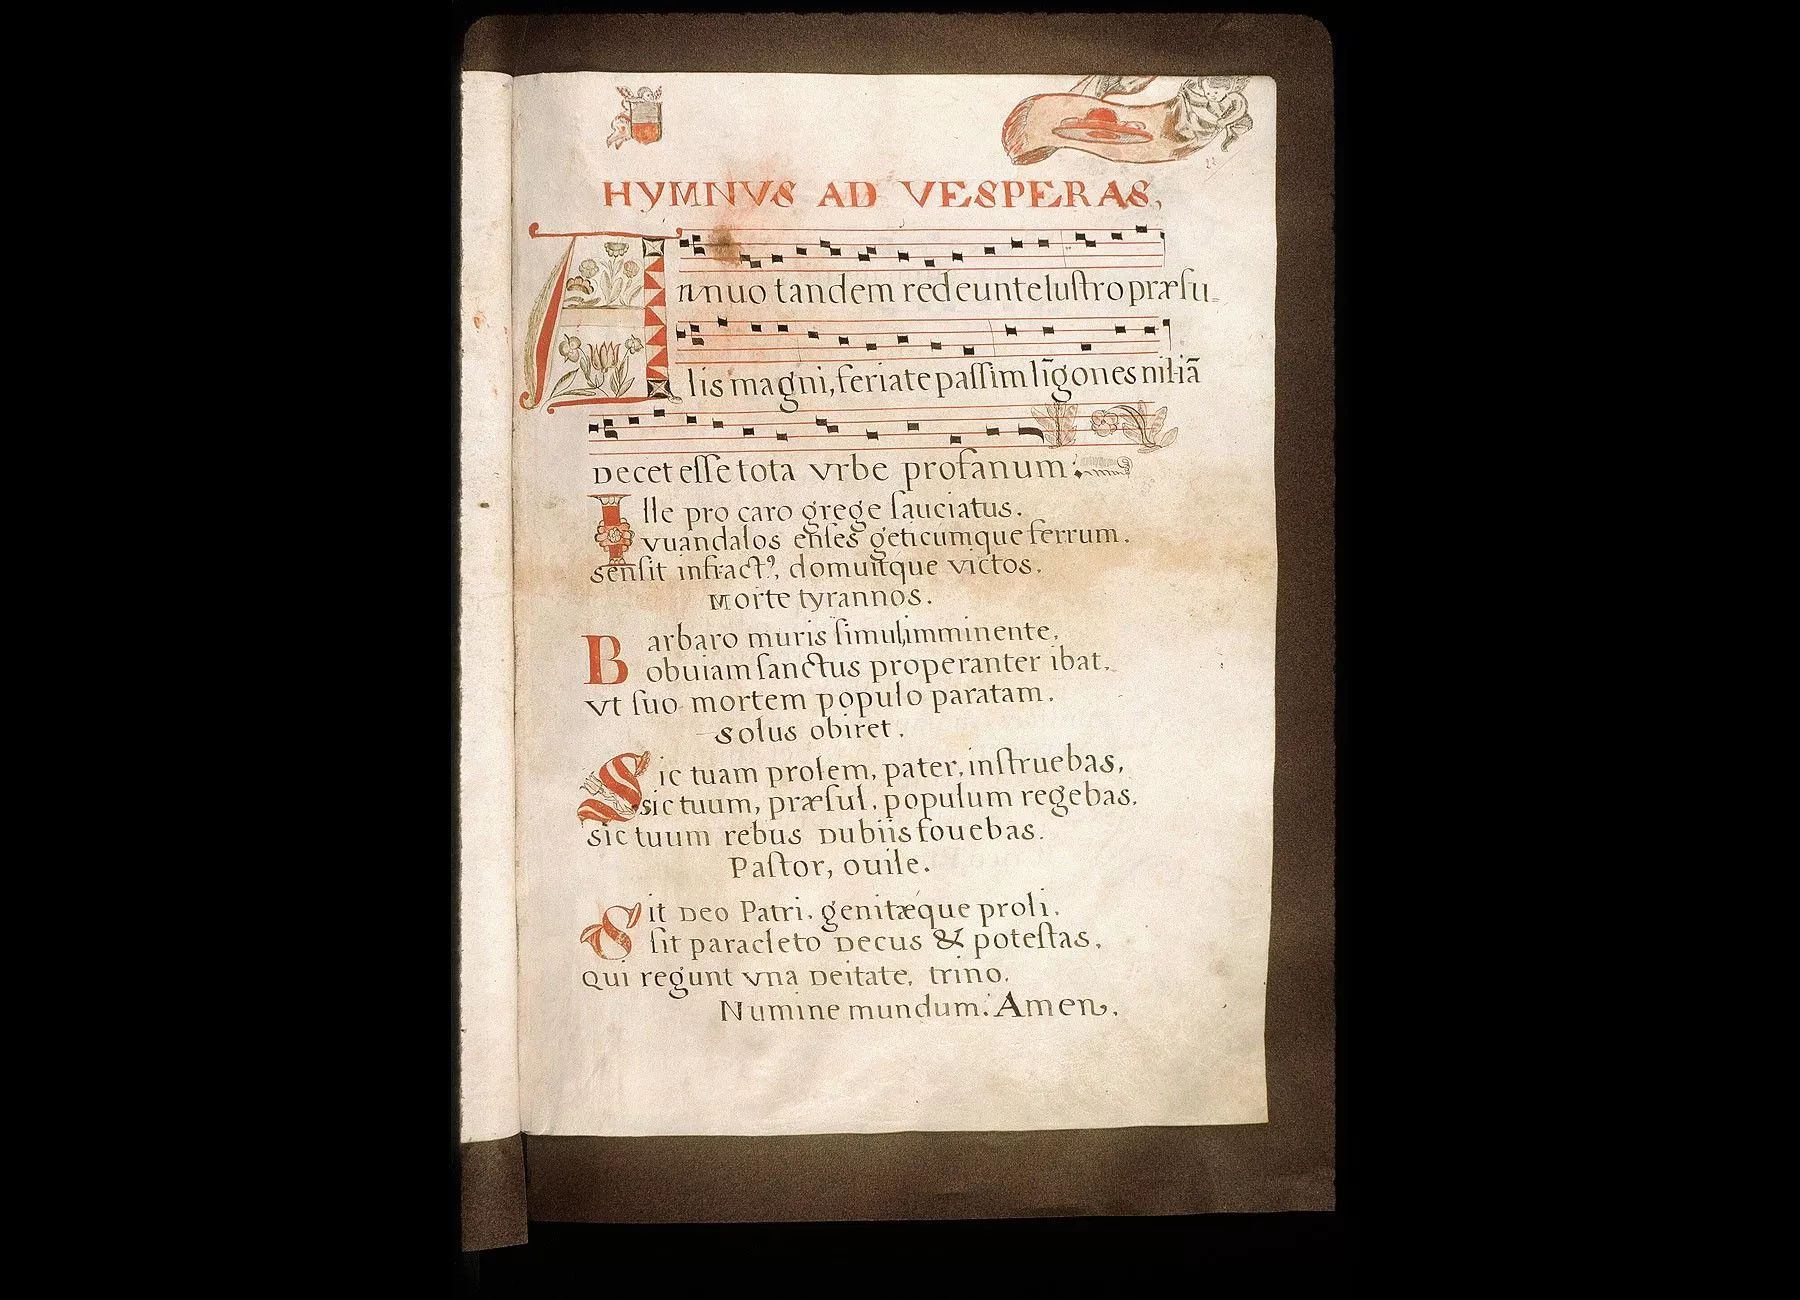 HYMNVS AD VESPERAS,
Annuo tandem redeunte luſtro præſu-
lis magni, feriate paſſim lig̃ones nil iã
Decet eſſe tota vrbe profanum:
Ille pro caro grege ſauciatus.
vuandalos enſes geticumque ferrum.
senſit infractꝰ, domuitque victos.
Morte tyrannos.
Barbaro muris ſimul, imminente,
obuiam ſanctus properanter ibat,
vt ſuo mortem populo paratam.
solus obiret.
Sic tuam prolem, pater, inſtruebas,
sic tuum, præſul, populum regebas,
sic tuum rebus Dubiis fouebas.
Paſtor, ouile.
Sit Deo Patri, genitæque proli,
ſit paracleto Decus & poteſtas,
Qui regunt vna Deitate, trino.
Numine mundum. Amen.